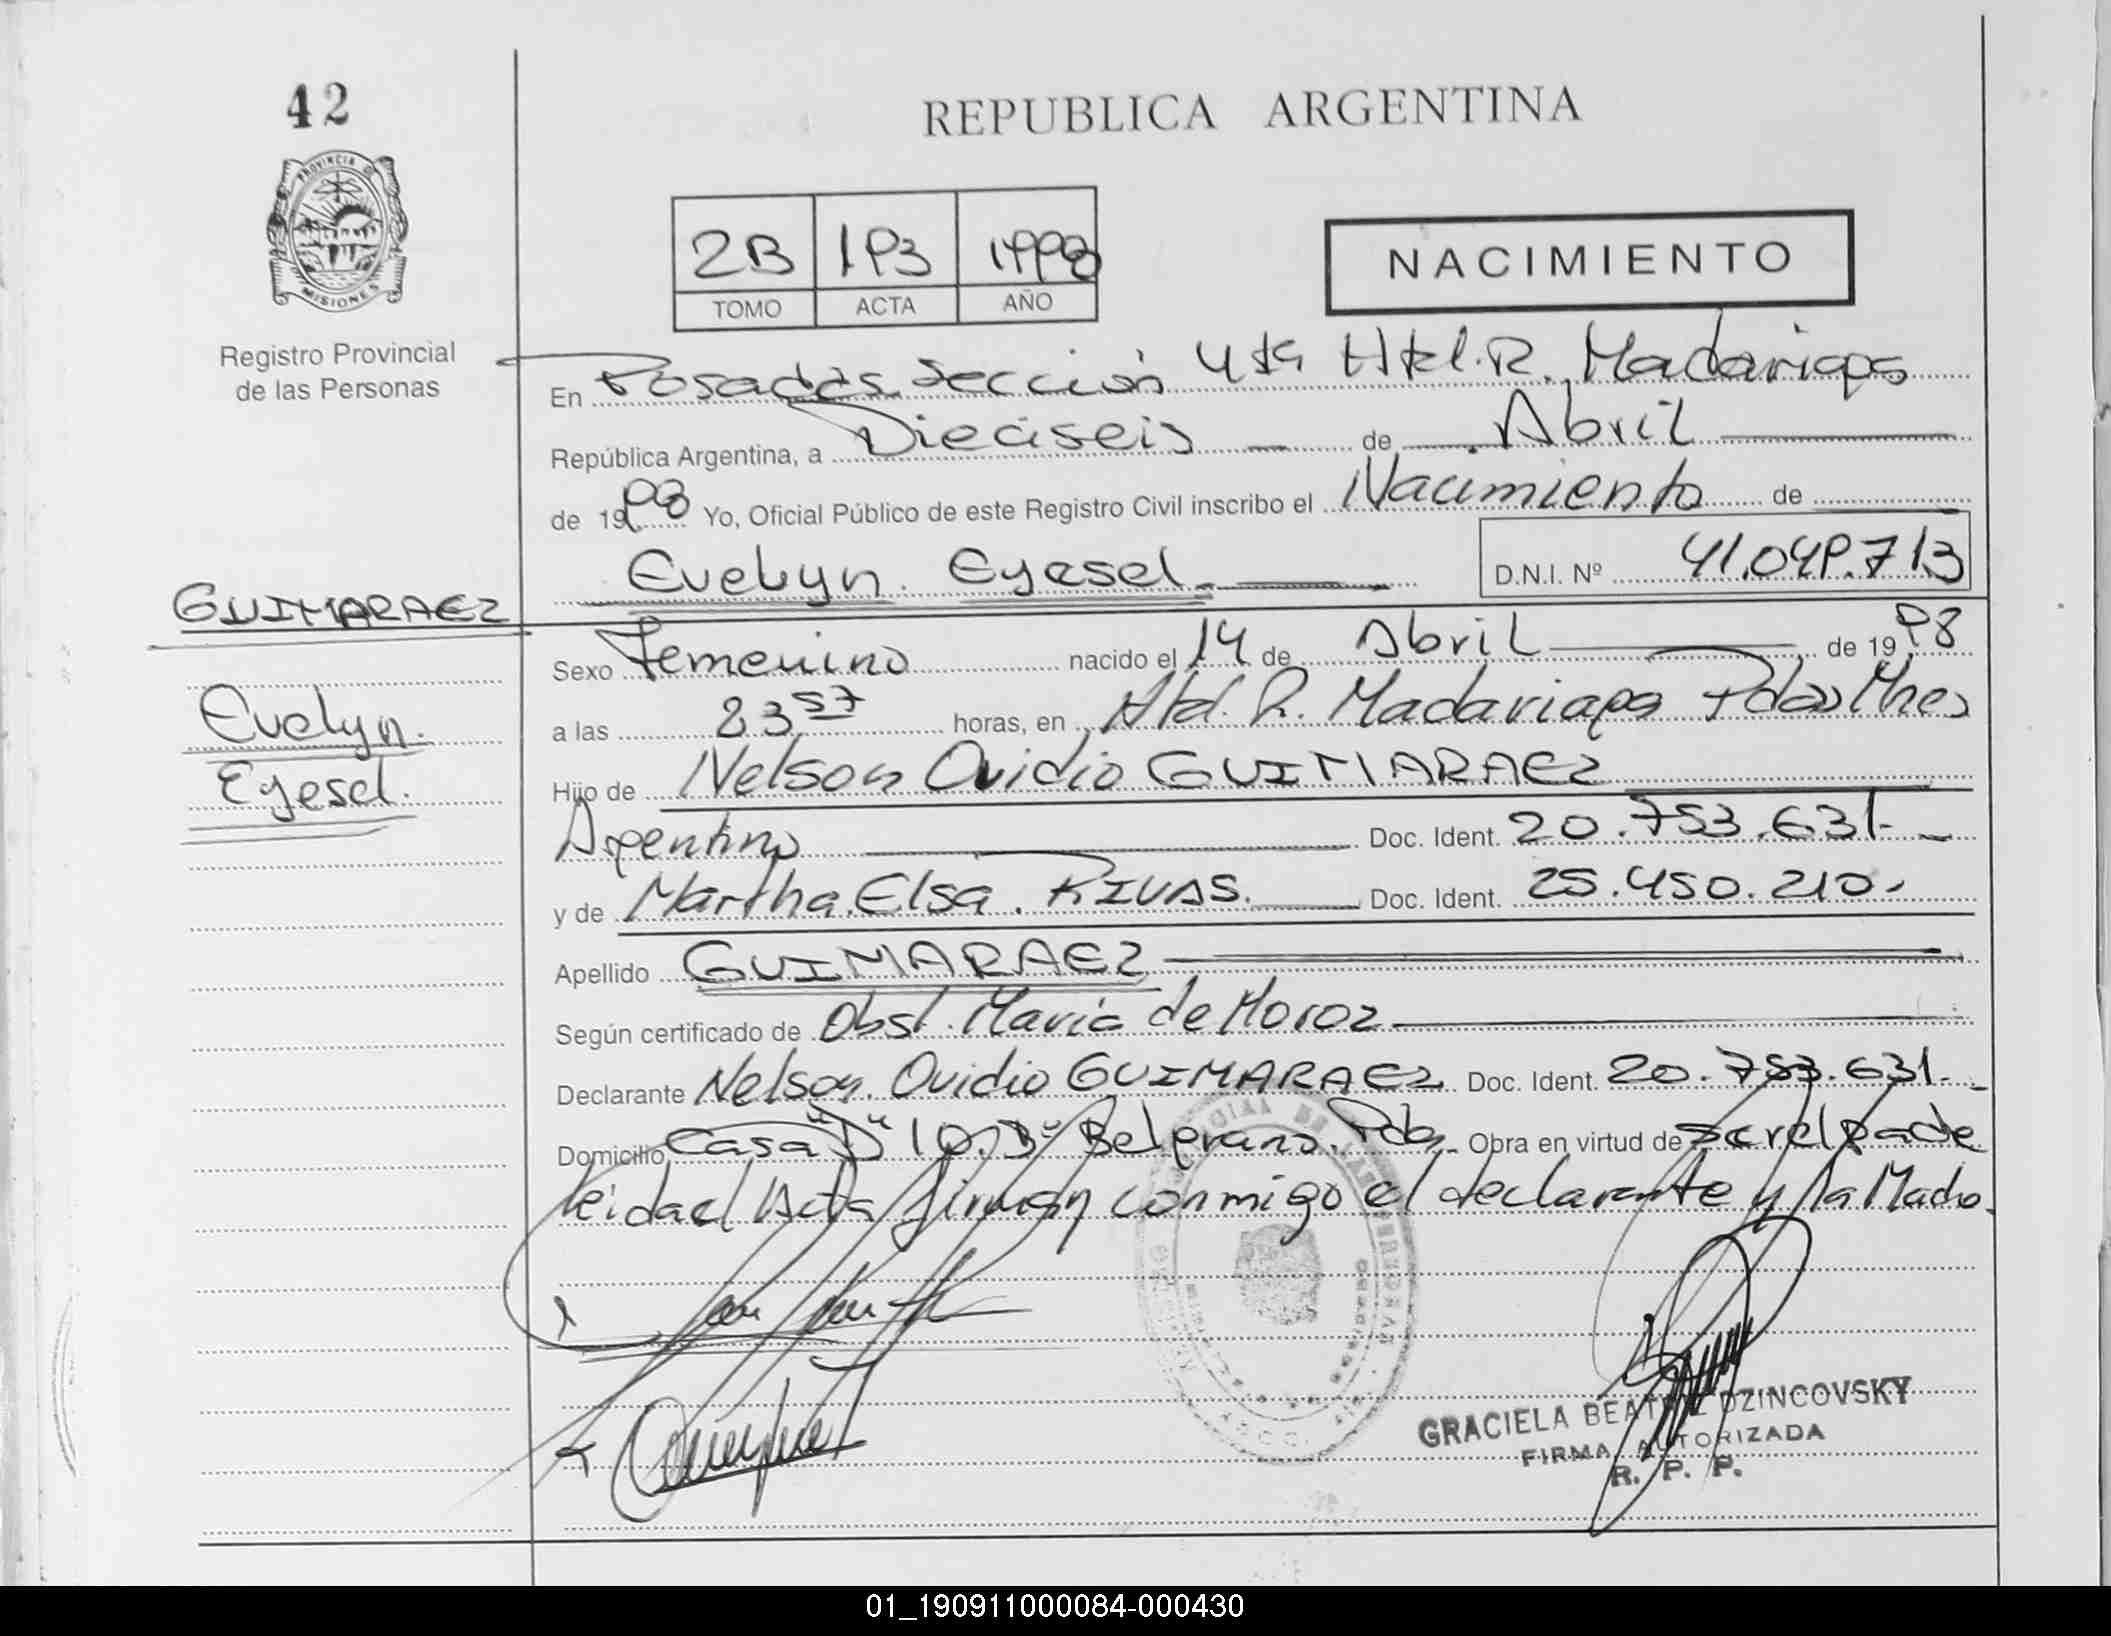 42
REPUBLICA ARGENTINA
PROVINCIA DE
MISIONES
Registro Provincial
de las Personas
2B 193 1998
TOMO ACTA AÑO
NACIMIENTO
En Posadas Sección 4ta Htal. R. Madariaga
República Argentina, a Dieciseis de Abril
de 1998 Yo, Oficial Público de este Registro Civil inscribo el Nacimiento de
Evelyn Eyesel D.N.I. Nº 41.049.713
GUIMARAEZ
Evelyn
Eyesel.
Sexo Femenino nacido el 14 de Abril de 1998
a las 23 57 horas, en Htal. R. Madariaga Pdas Mnes
Hijo de Nelson Ovidio GUIMARAEZ
Argentino Doc. Ident. 20.753.631.
y de Martha Elsa. RIVAS. Doc. Ident. 25.450.210.
Apellido GUIMARAEZ
Según certificado de Obst. Maria de Moroz
Declarante Nelson Ovidio GUIMARAEZ Doc. Ident. 20.753.631.
Domicilio Casa "D" 10. Bº Belgrano. Pdas. Obra en virtud de ser el padre
leida el Acta firman conmigo el declarante y la Madre.
GRACIELA BEATRIZ DZINCOVSKY
FIRMA AUTORIZADA
R. P. P.
01_190911000084-000430